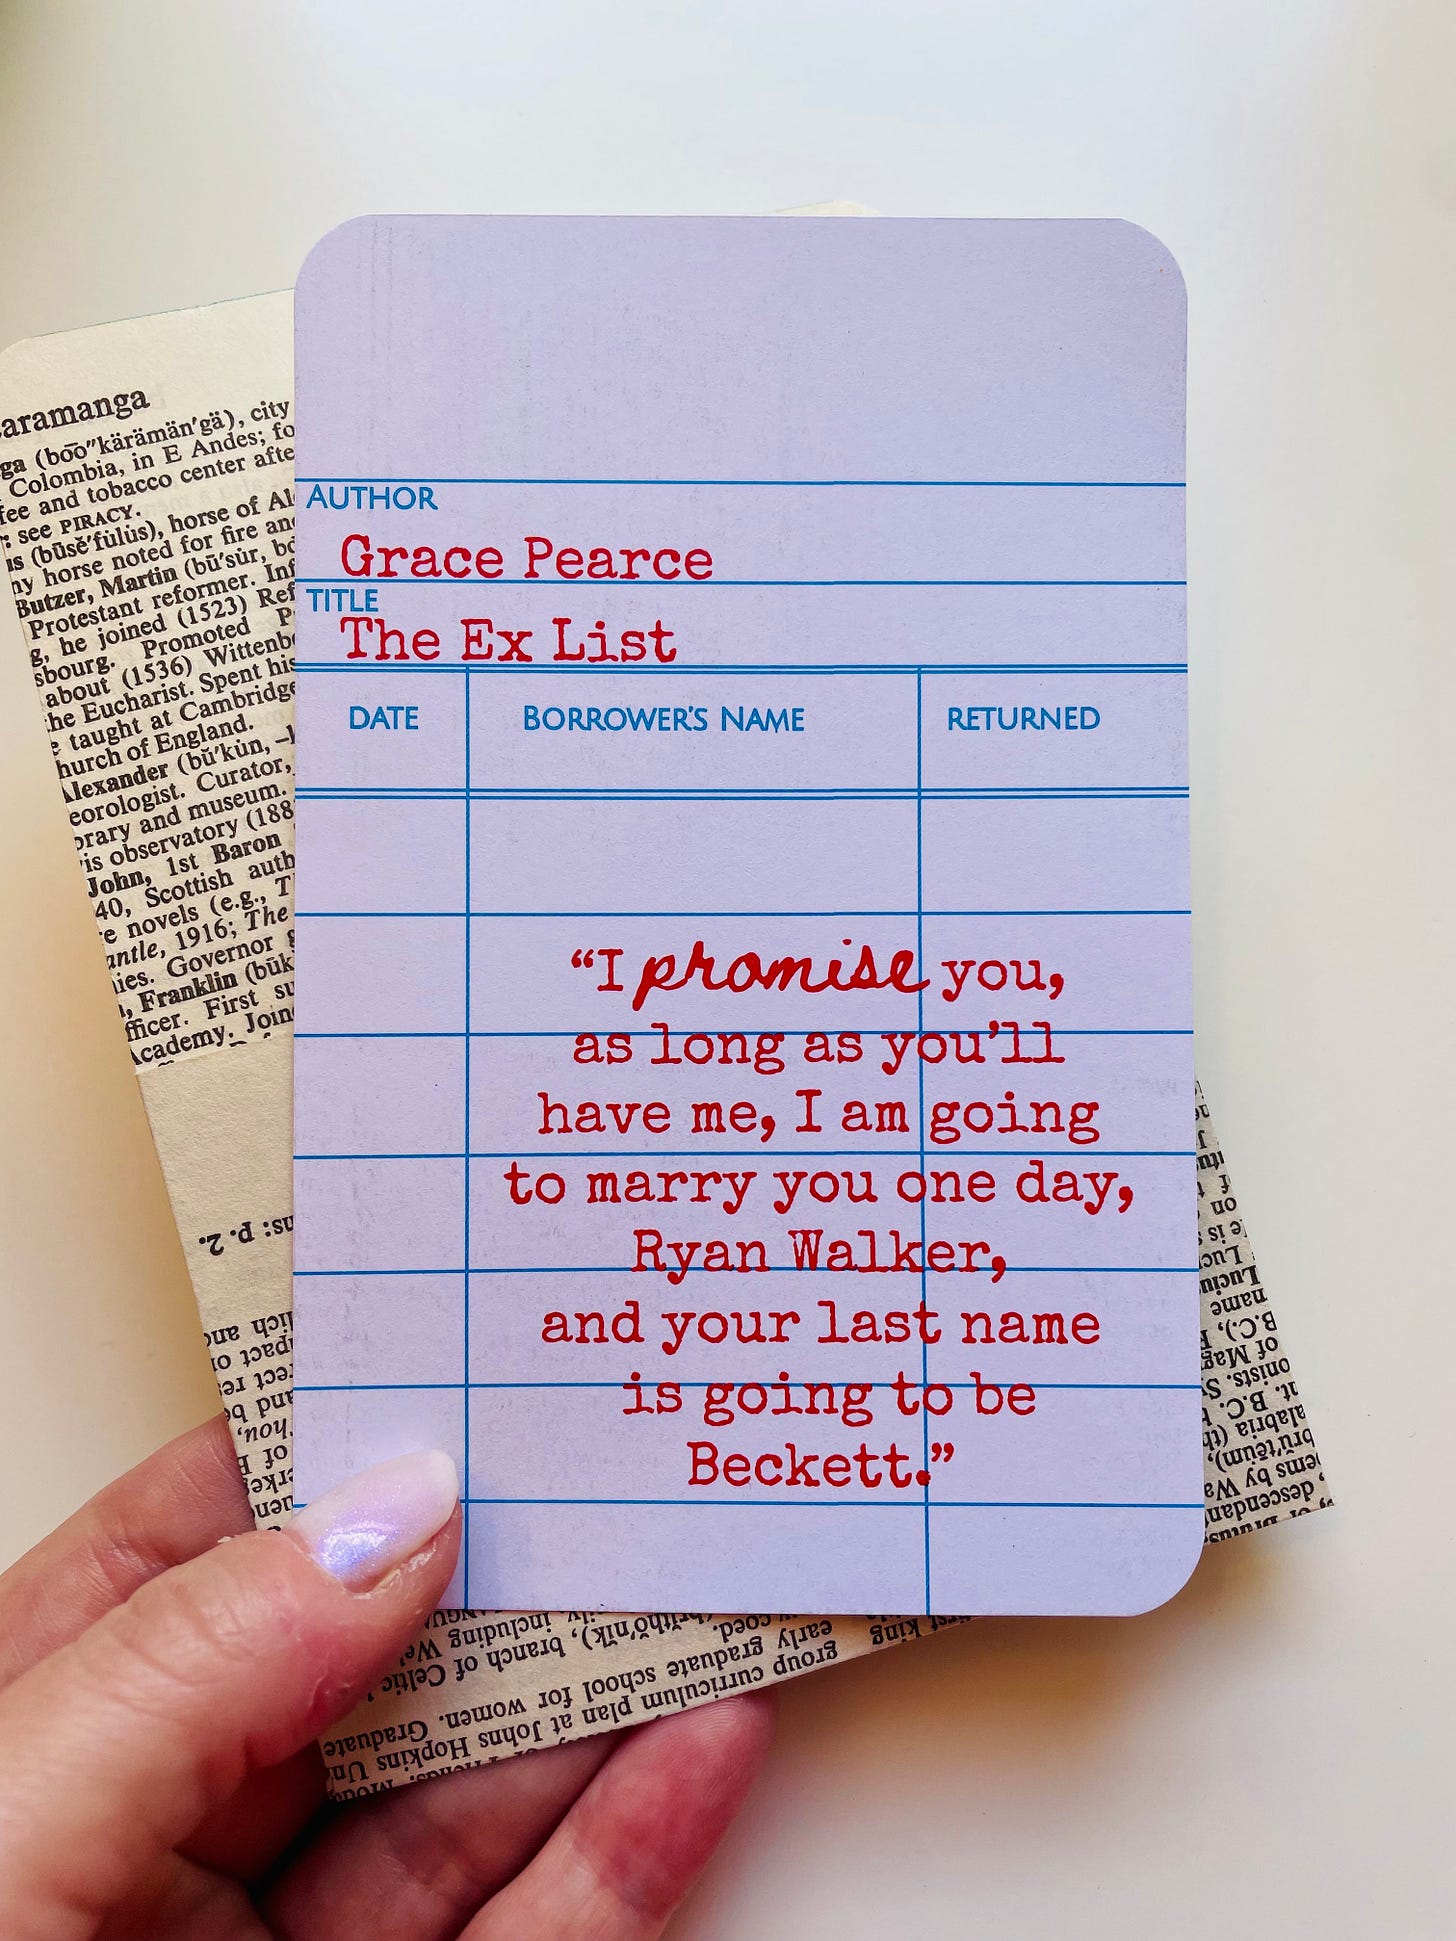 AUTHOR
Grace Pearce
TITLE
The Ex List
DATE BORROWER'S NAME RETURNED
“I promise you,
as long as you’ll
have me, I am going
to marry you one day,
Ryan Walker,
and your last name
is going to be
Beckett.”
aramanga
ga (bōō"kärämän'gä), city
Colombia, in E Andes; fo
fee and tobacco center afte
: see PIRACY.
(būsĕ'fŭlŭs), horse of Al
ny horse noted for fire an
Butzer, Martin (bū'sŭr, bo
Protestant reformer. Inf
g, he joined (1523) Ref
sbourg. Promoted P
about (1536) Wittenb
he Eucharist. Spent his
taught at Cambridge
hurch of England.
Alexander (bŭ'kŭn,
eorologist. Curator,
brary and museum.
is observatory (188
John, 1st Baron
40, Scottish auth
e novels (e.g., T
antle, 1916; The
ies. Governor
Franklin (būk
fficer. First su
Academy. Join
ns: p. 2.
group curriculum plan at Johns Hopkins Un
early graduate school for women. Graduate
coed.
including We
branch of Celtic
first king